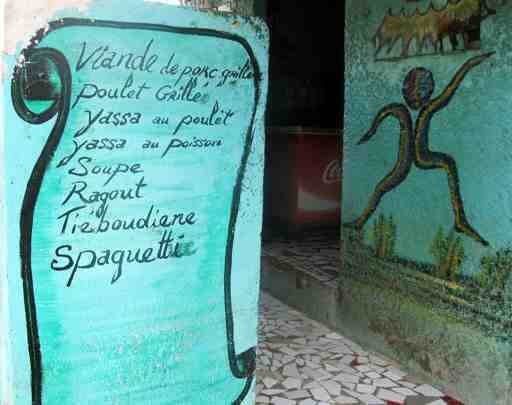 Viande de porc grillée
Poulet Grillée
Yassa au poulet
yassa au poisson
Soupe
Ragout
Tiéboudiene
Spaquettie
Coca